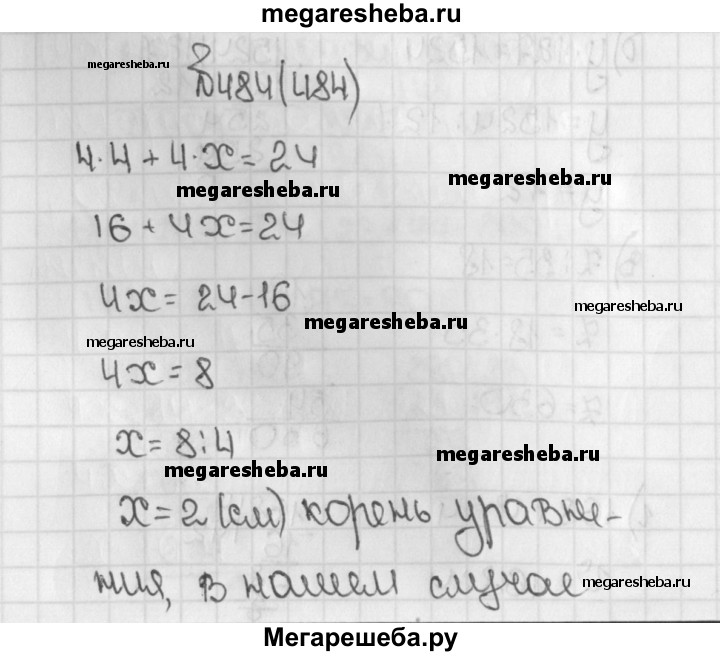 megaresheba.ru
megaresheba.ru
№484(484)
4·4 + 4·x = 24
megaresheba.ru
megaresheba.ru
16 + 4x = 24
4x = 24-16
megaresheba.ru
megaresheba.ru
megaresheba.ru
4x = 8
x = 8:4
megaresheba.ru
megaresheba.ru
x = 2 (см) корень уравне-
ния, в нашем случае
megaresheba.ru
Мегарешеба.ру